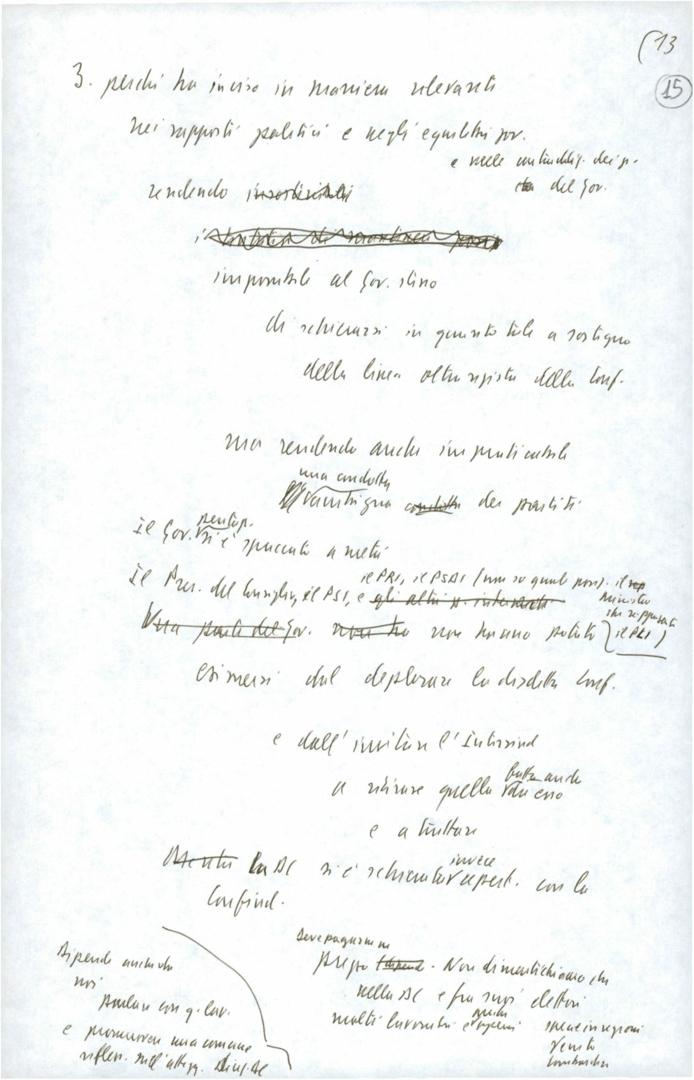 (13
15
3. perché ha inciso in maniera rilevante
nei rapporti politici e negli equilibri gov.
e nelle dei p.
del Gov.
rendendo
impossibile al Gov. stesso
di schierarsi in quanto tale a sostegno
della linea oltranzista della Conf.
ma rendendo anche impraticabile
una condotta
ambigua condotta dei partiti
Il Gov. pentap. si è spaccato a metà
il PRI, il PSDI (non so quale pos). il
Il Pres. del Consiglio, il PSI, e gli altri p. interessati
ministro
che rappresenta
Una parte del Gov. non ha non hanno potuto il PRI)
esimersi dal deplorare la disdetta Conf.
e dall'invitare l'Intersind
a ritirare quella anche esso
e a trattare
Mentre la DC si è schierata invece apert. con la
Confind.
Deve pagare un
prezzo. Non dimentichiamo che
nella DC e fra suoi elettori
molti lavoratori e operai specie in regioni
Veneto
Lombardia
Dipende anche da
noi
parlare con q. lav.
e promuovere una comune
rifless. sull'attegg. DC